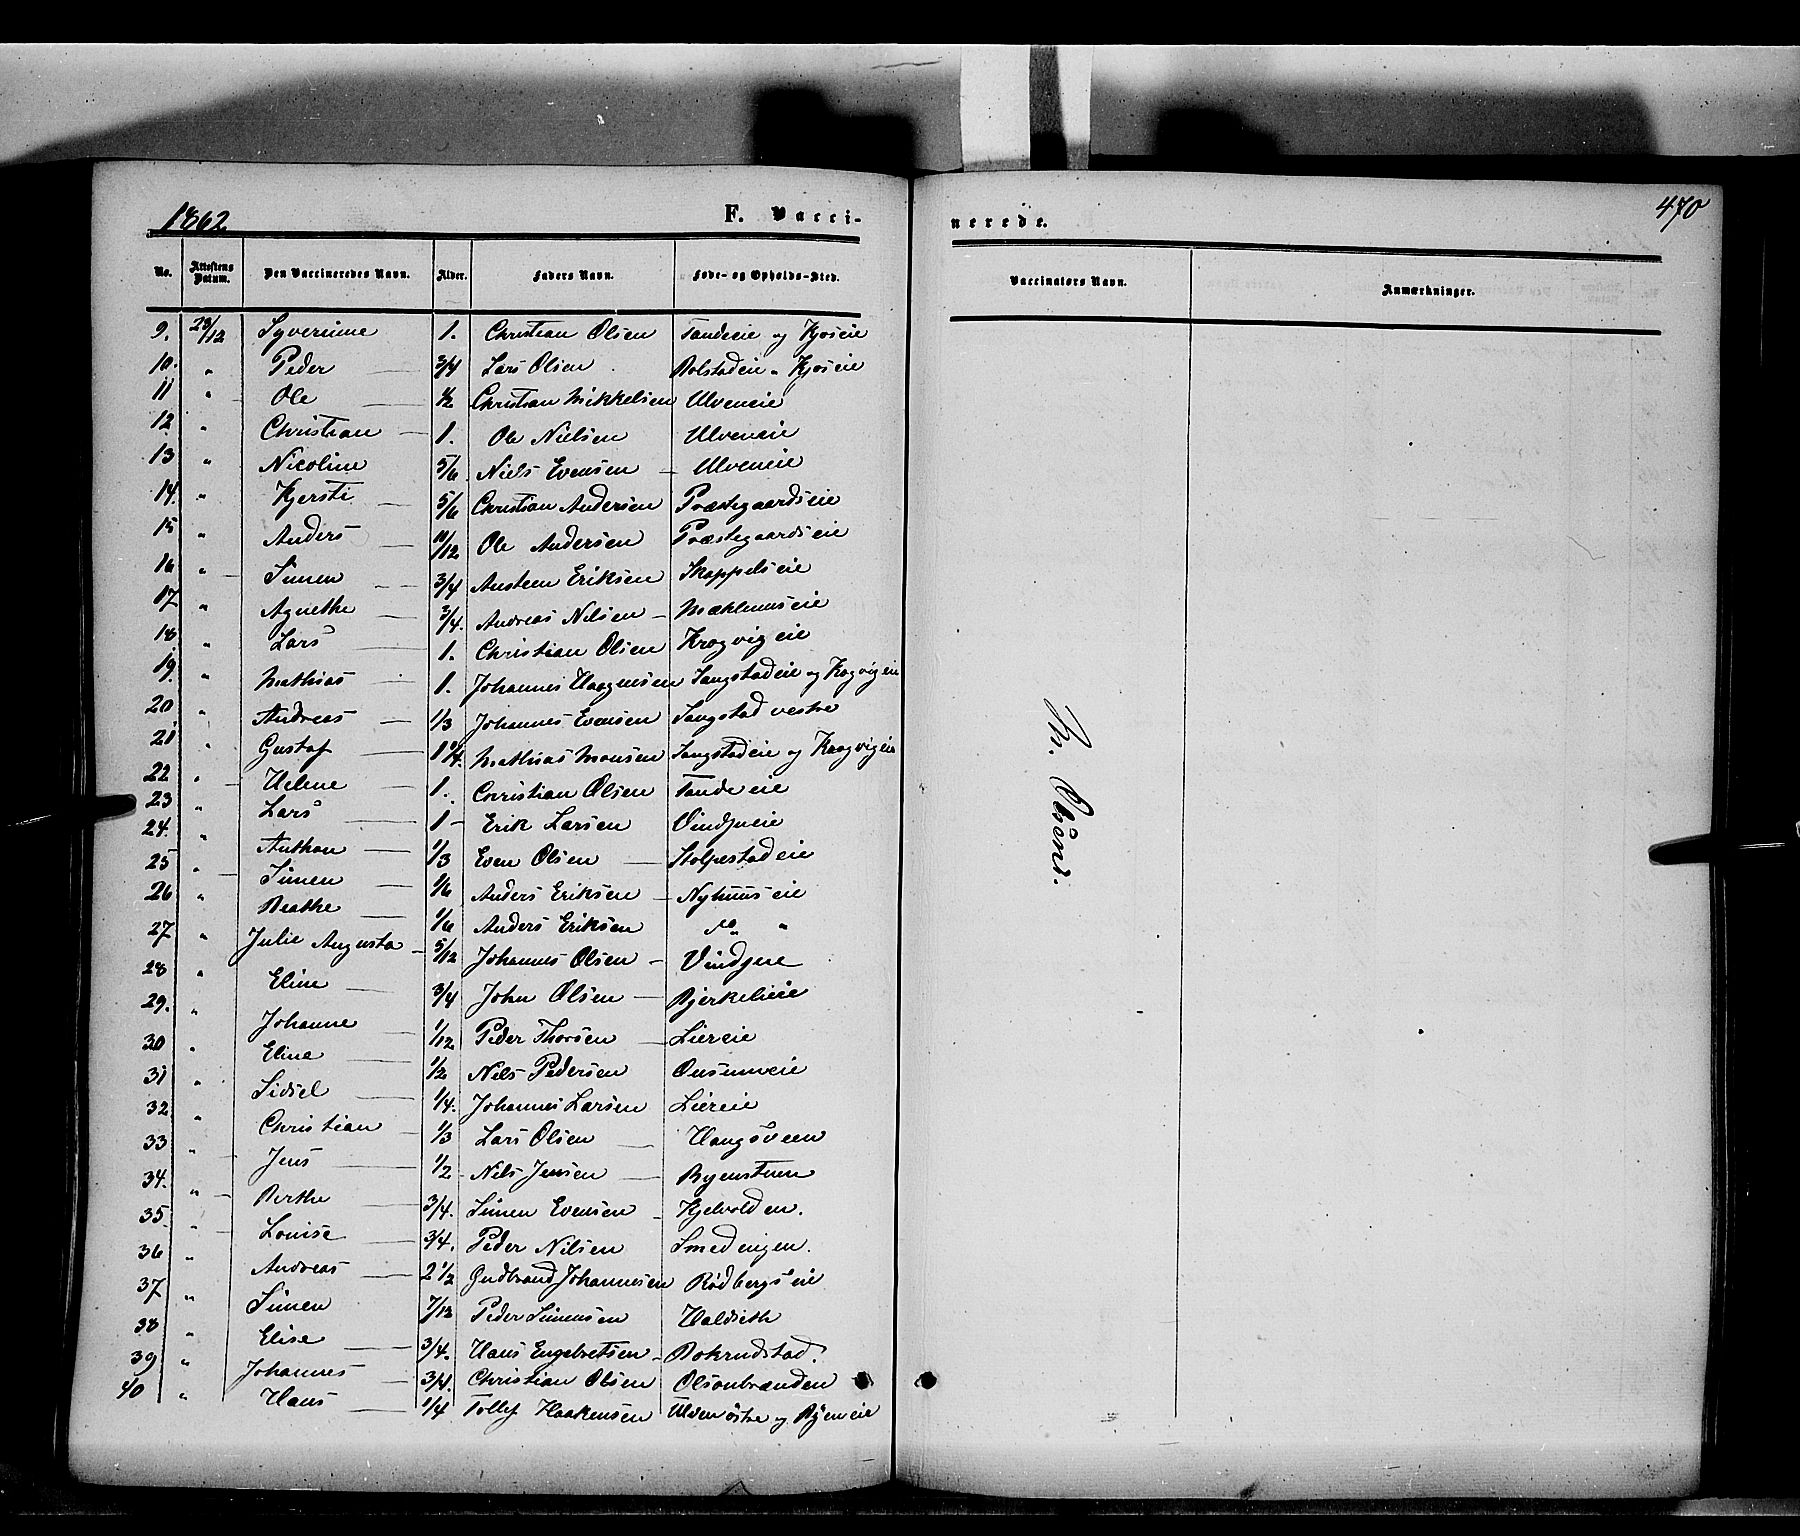 1862
F. Vacci-
nerede.
470
No. Attestens Datum. Den Vaccineredes Navn. Alder. Faders Navn. Føde- og Opholds-Sted. Vaccinatørs Navn. Anmærkninger.
9. 23/12 Syverinne 1. Christian Olsen Tandeeie og Kjøseie
10. " Peder 3/4 Lars Olsen Bolstadeie " Kjøseie
11 " Ole 1/2 Christian Mikkelsen Ulveneie
12 " Christian 1. Ole Nielsen Ulveneie
13 " Nicoline 5/6 Niels Evensen Ulveneie
14. " Kjersti 5/6 Christian Andersen Præstegaardseie
15 " Anders 11/12 Ole Andersen Præstegaardseie
16 " Simen 3/4 Austeen Eriksen Skappelseie
17 " Agnethe 3/4. Andreas Nilsen Mæhlumseie
18 " Lars 1. Christian Olsen Krogvigeie
19. " Mathias 1. Johannes Haagensen Sangstadeie og Krogvigeie
20 " Andreas 1/3 Johannes Evensen Sangstad vestre
21 " Gustaf 1 1/4. Mathias Monsen Sangstadeie og Kraagvigeie
22 " Helene 1. Christian Olsen Tandeeie
23 " Lars 1 Erik Larsen Vindjueie
24. " Anthon 1/3 Even Olsen Stolpestadeie
25 " Simen 1/6 Anders Eriksen Nyhuuseie
26 " Beathe 1/6 Anders Eriksen do "
27 " Julie Augusta 5/12 Johannes Olsen Vindjueie
28 " Eline 3/4 John Olsen Bjerkelieie
29. " Johanne 1/12 Peder Thorsen Liereie
30 " Eline 1/2 Nels Pedersen
31 " Sidsel 1/4. Johannes Larsen Liereie
32 " Christian 1/3 Lars Olsen Haugsveen
33 " Jens 1/2 Nels Jensen Byenstuen
34. " Berthe 3/4. Simen Evensen Kjelvolden.
35 " Louise 3/4. Peder Nilsen Smedengen.
36 " Andreas 2 1/2 Gudbrand Johannesen Rødbergseie
37 " Simen 7/12 Peder Simensen Haldseth
38 " Elise 3/4. Hans Engebretsen Bokrudstad.
39 " Johannes 3/4. Christian Olsen Olsonbrænden
40 " Hans 1/4 Tollef Haakensen Ulven østre og Byeneie